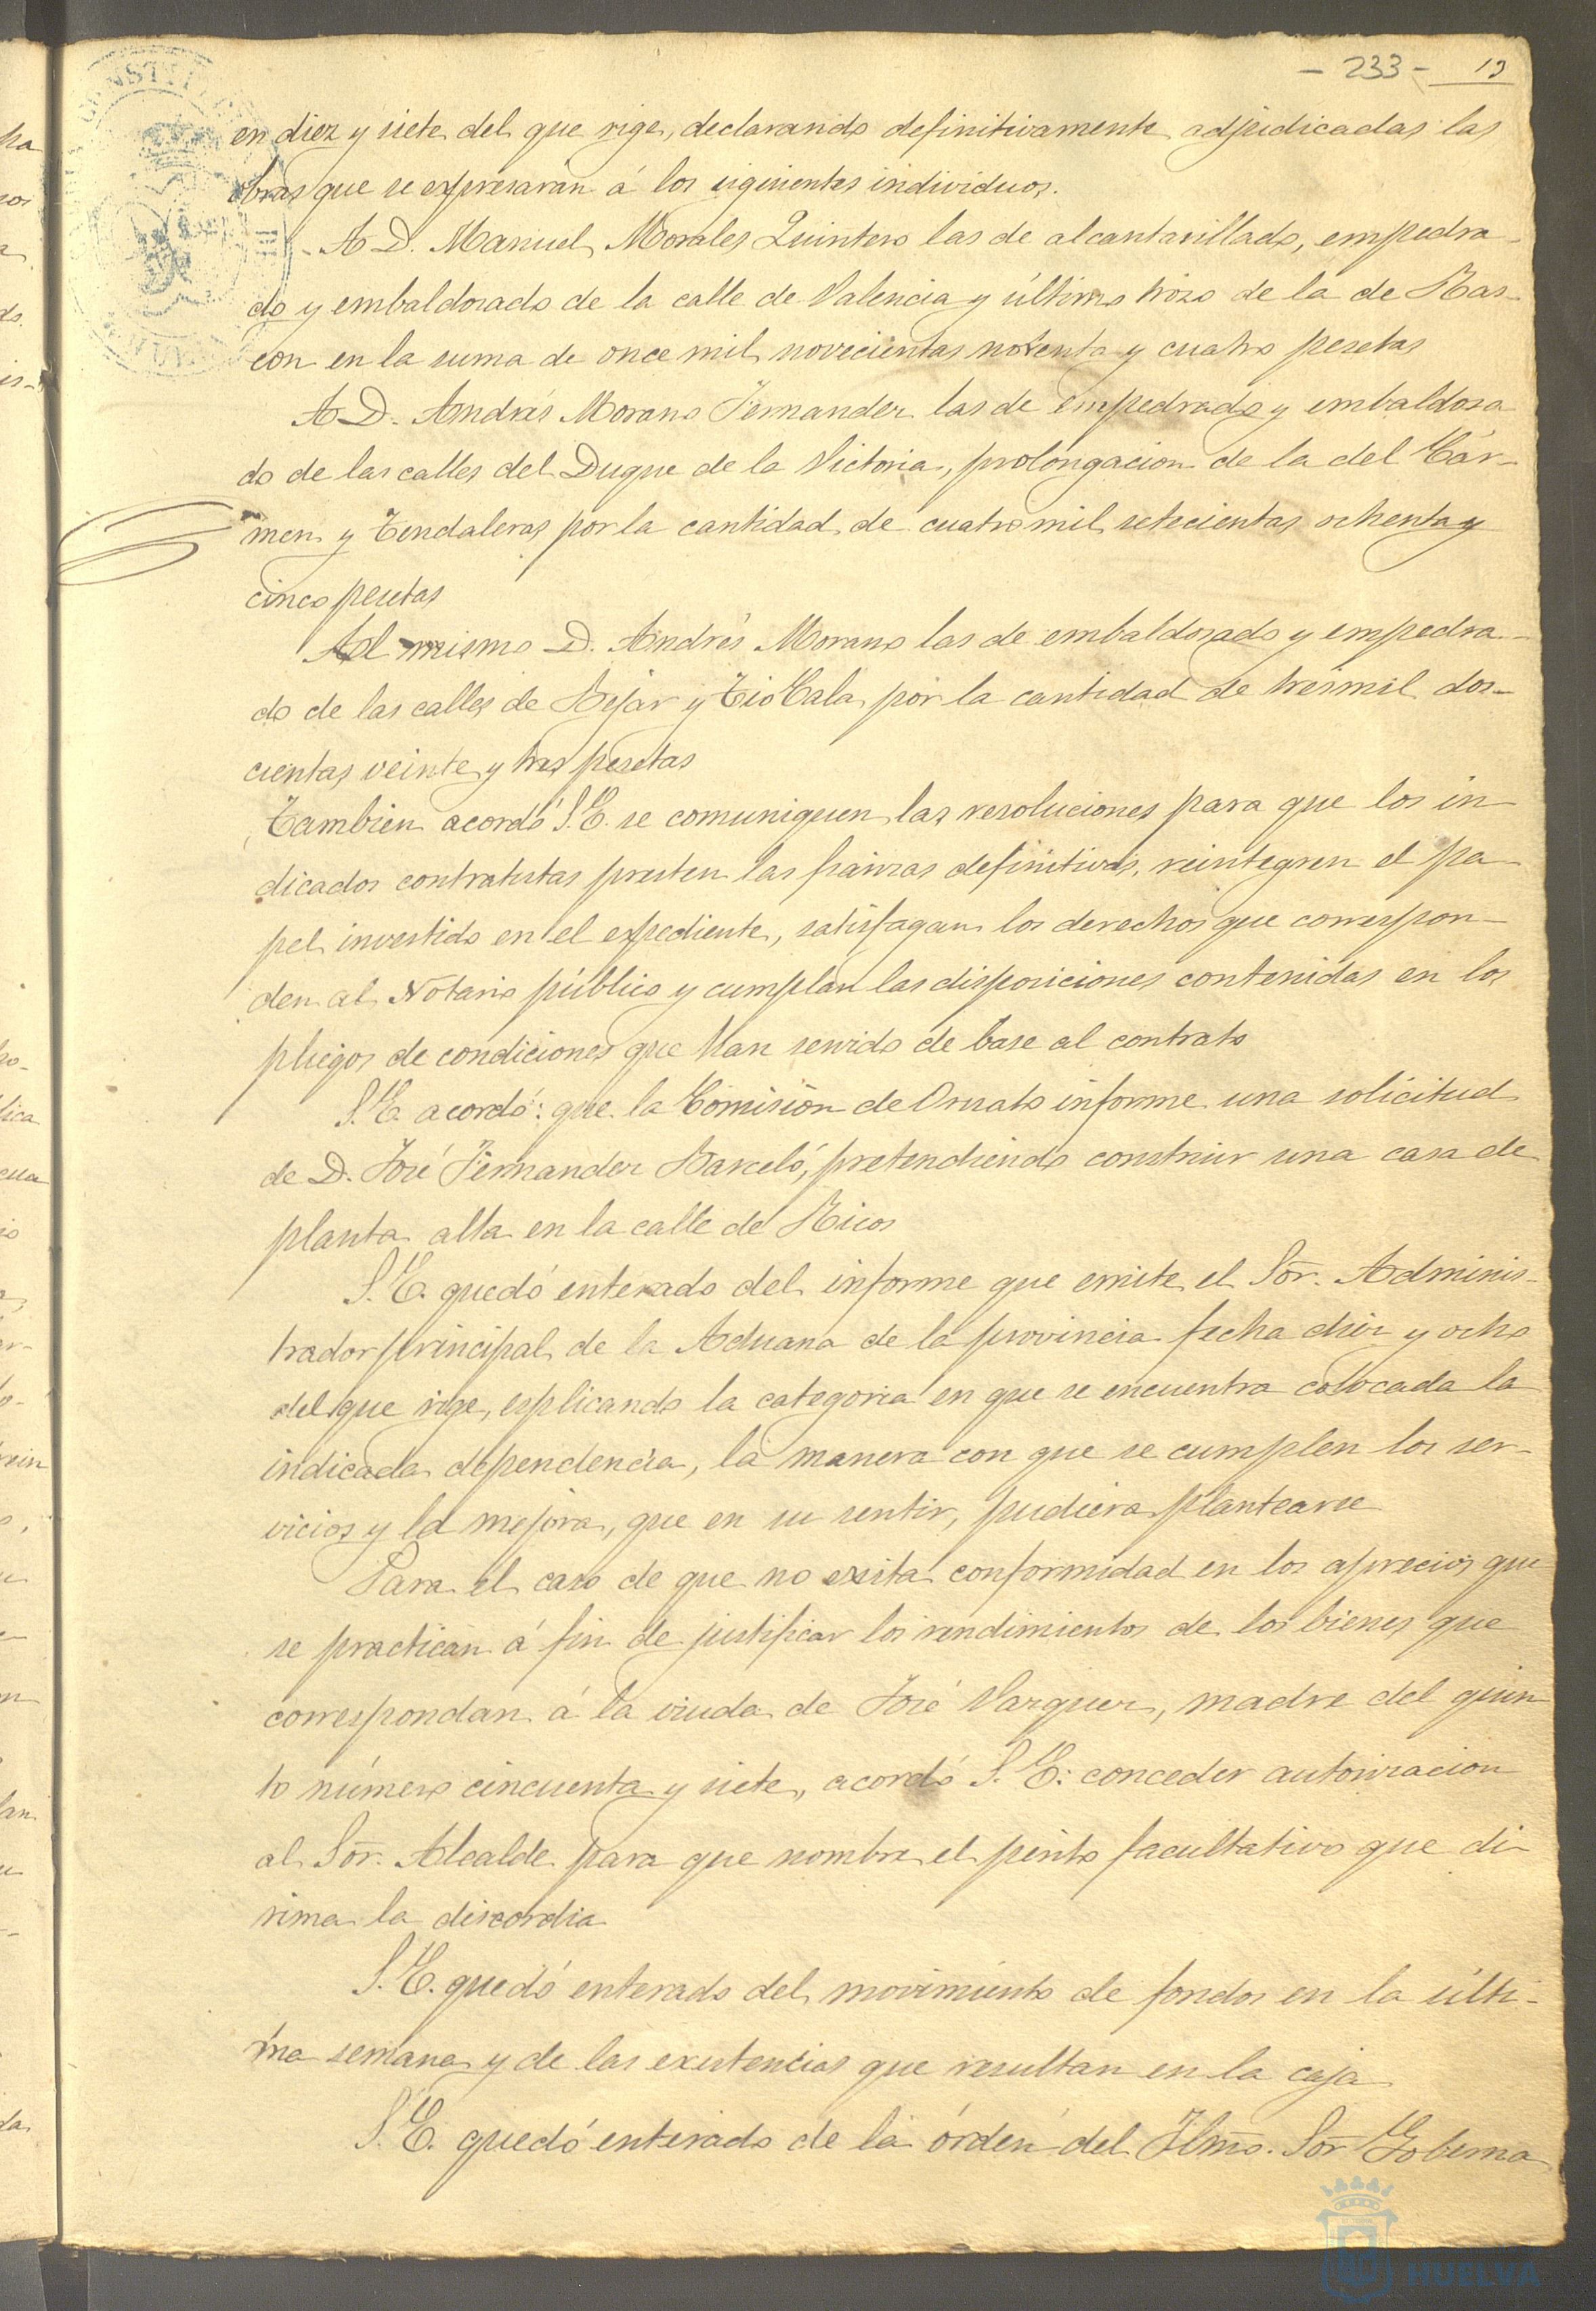 - 233 - 19
en diez y siete del que rige, declarando definitivamente adjudicadas las
obras que se expresarán á los siguientes individuos.
A D. Manuel Morales Quintero las de alcantarillado, empedra-
do y embaldosado de la calle de Valencia y último trozo de la de Ras-
con en la suma de once mil novecientas noventa y cuatro pesetas
A D. Andrés Morano Fernandez las de empedrado y embaldosa
do de las calles del Duque de la Victoria, prolongacion de la del Cár-
men y Tendaleras por la cantidad de cuatro mil setecientas ochenta y
cinco pesetas
Al mismo D. Andrés Morano las de embaldosado y empedra-
do de las calles de Bejar y Tio Cala por la cantidad de tres mil dos-
cientas veinte y tres pesetas
Tambien acordó S.E. se comuniquen las resoluciones para que los in-
dicados contratistas presten las fianzas definitivas, reintegren el pa-
pel invertido en el expediente, satisfagan los derechos que correspon-
den al Notario público y cumplan las disposiciones contenidas en los
pliegos de condiciones que han servido de base al contrato
S.E. acordó: que la Comisión de Ornato informe una solicitud
de D. José Fernandez Barceló, pretendiendo construir una casa de
planta alta en la calle de Ricos
S.E. quedó enterado del informe que emite el Sor. Adminis-
trador principal de la Aduana de la provincia fecha diez y ocho
del que rige, esplicando la categoria en que se encuentra colocada la
indicada dependencia, la manera con que se cumplen los ser-
vicios y la mejora, que en su sentir, pudiera plantearse
Para el caso de que no exista conformidad en los aprecios que
se practican á fin de justificar los rendimientos de los bienes que
correspondan á la viuda de José Vazquez, madre del quin
to número cincuenta y siete, acordó S.E: conceder autorizacion
al Sor. Alcalde para que nombre el perito facultativo que di-
rima la discordia
S.E. quedó enterado del movimiento de fondos en la últi-
ma semana y de las existencias que resultan en la caja
S.E. quedó enterado de la órden del Ilmo. Sor Goberna
HUELVA